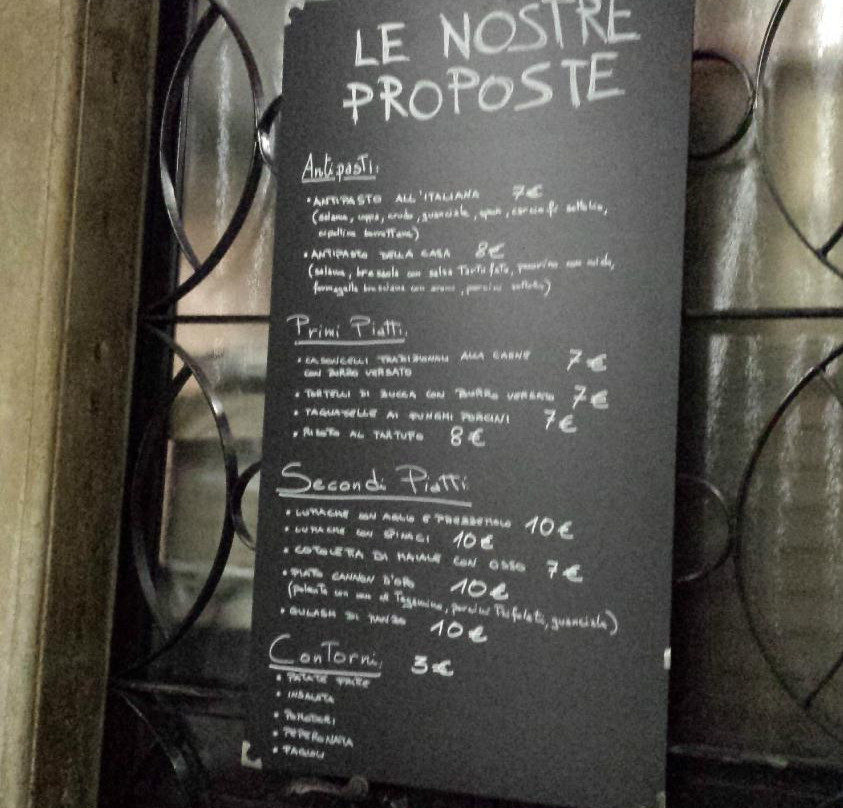 LE NOSTRE
PROPOSTE
Antipasti
• ANTIPASTO ALL'ITALIANA 7€
(salame, coppa, crudo, guanciale, speck, carciofi sottolio,
cipolline borrettane)
• ANTIPASTO DELLA CASA 8€
(salame, bresaola con salsa Tartufata, pecorino con miele,
formagella bresciana con, porcini sottolio)
Primi Piatti
• CASONCELLI TRADIZIONALI ALLA CARNE 7€
CON BURRO VERSATO
• TORTELLI DI ZUCCA CON BURRO VERSATO 7€
• TAGLIATELLE AI FUNGHI PORCINI 7€
• RISOTTO AL TARTUFO 8€
Secondi Piatti
• LUMACHE CON AGLIO E PREZZEMOLO 10€
• LUMACHE CON SPINACI 10€
• COTOLETTA DI MAIALE CON OSSO 7€
• PIATTO CANNON D'ORO 10€
(polenta con, porcini Trifolati, guanciale)
• GULASH DI MANZO 10€
Contorni 3€
• PATATE FRITTE
• INSALATA
• POMODORI
• PEPERONATA
• FAGIOLI